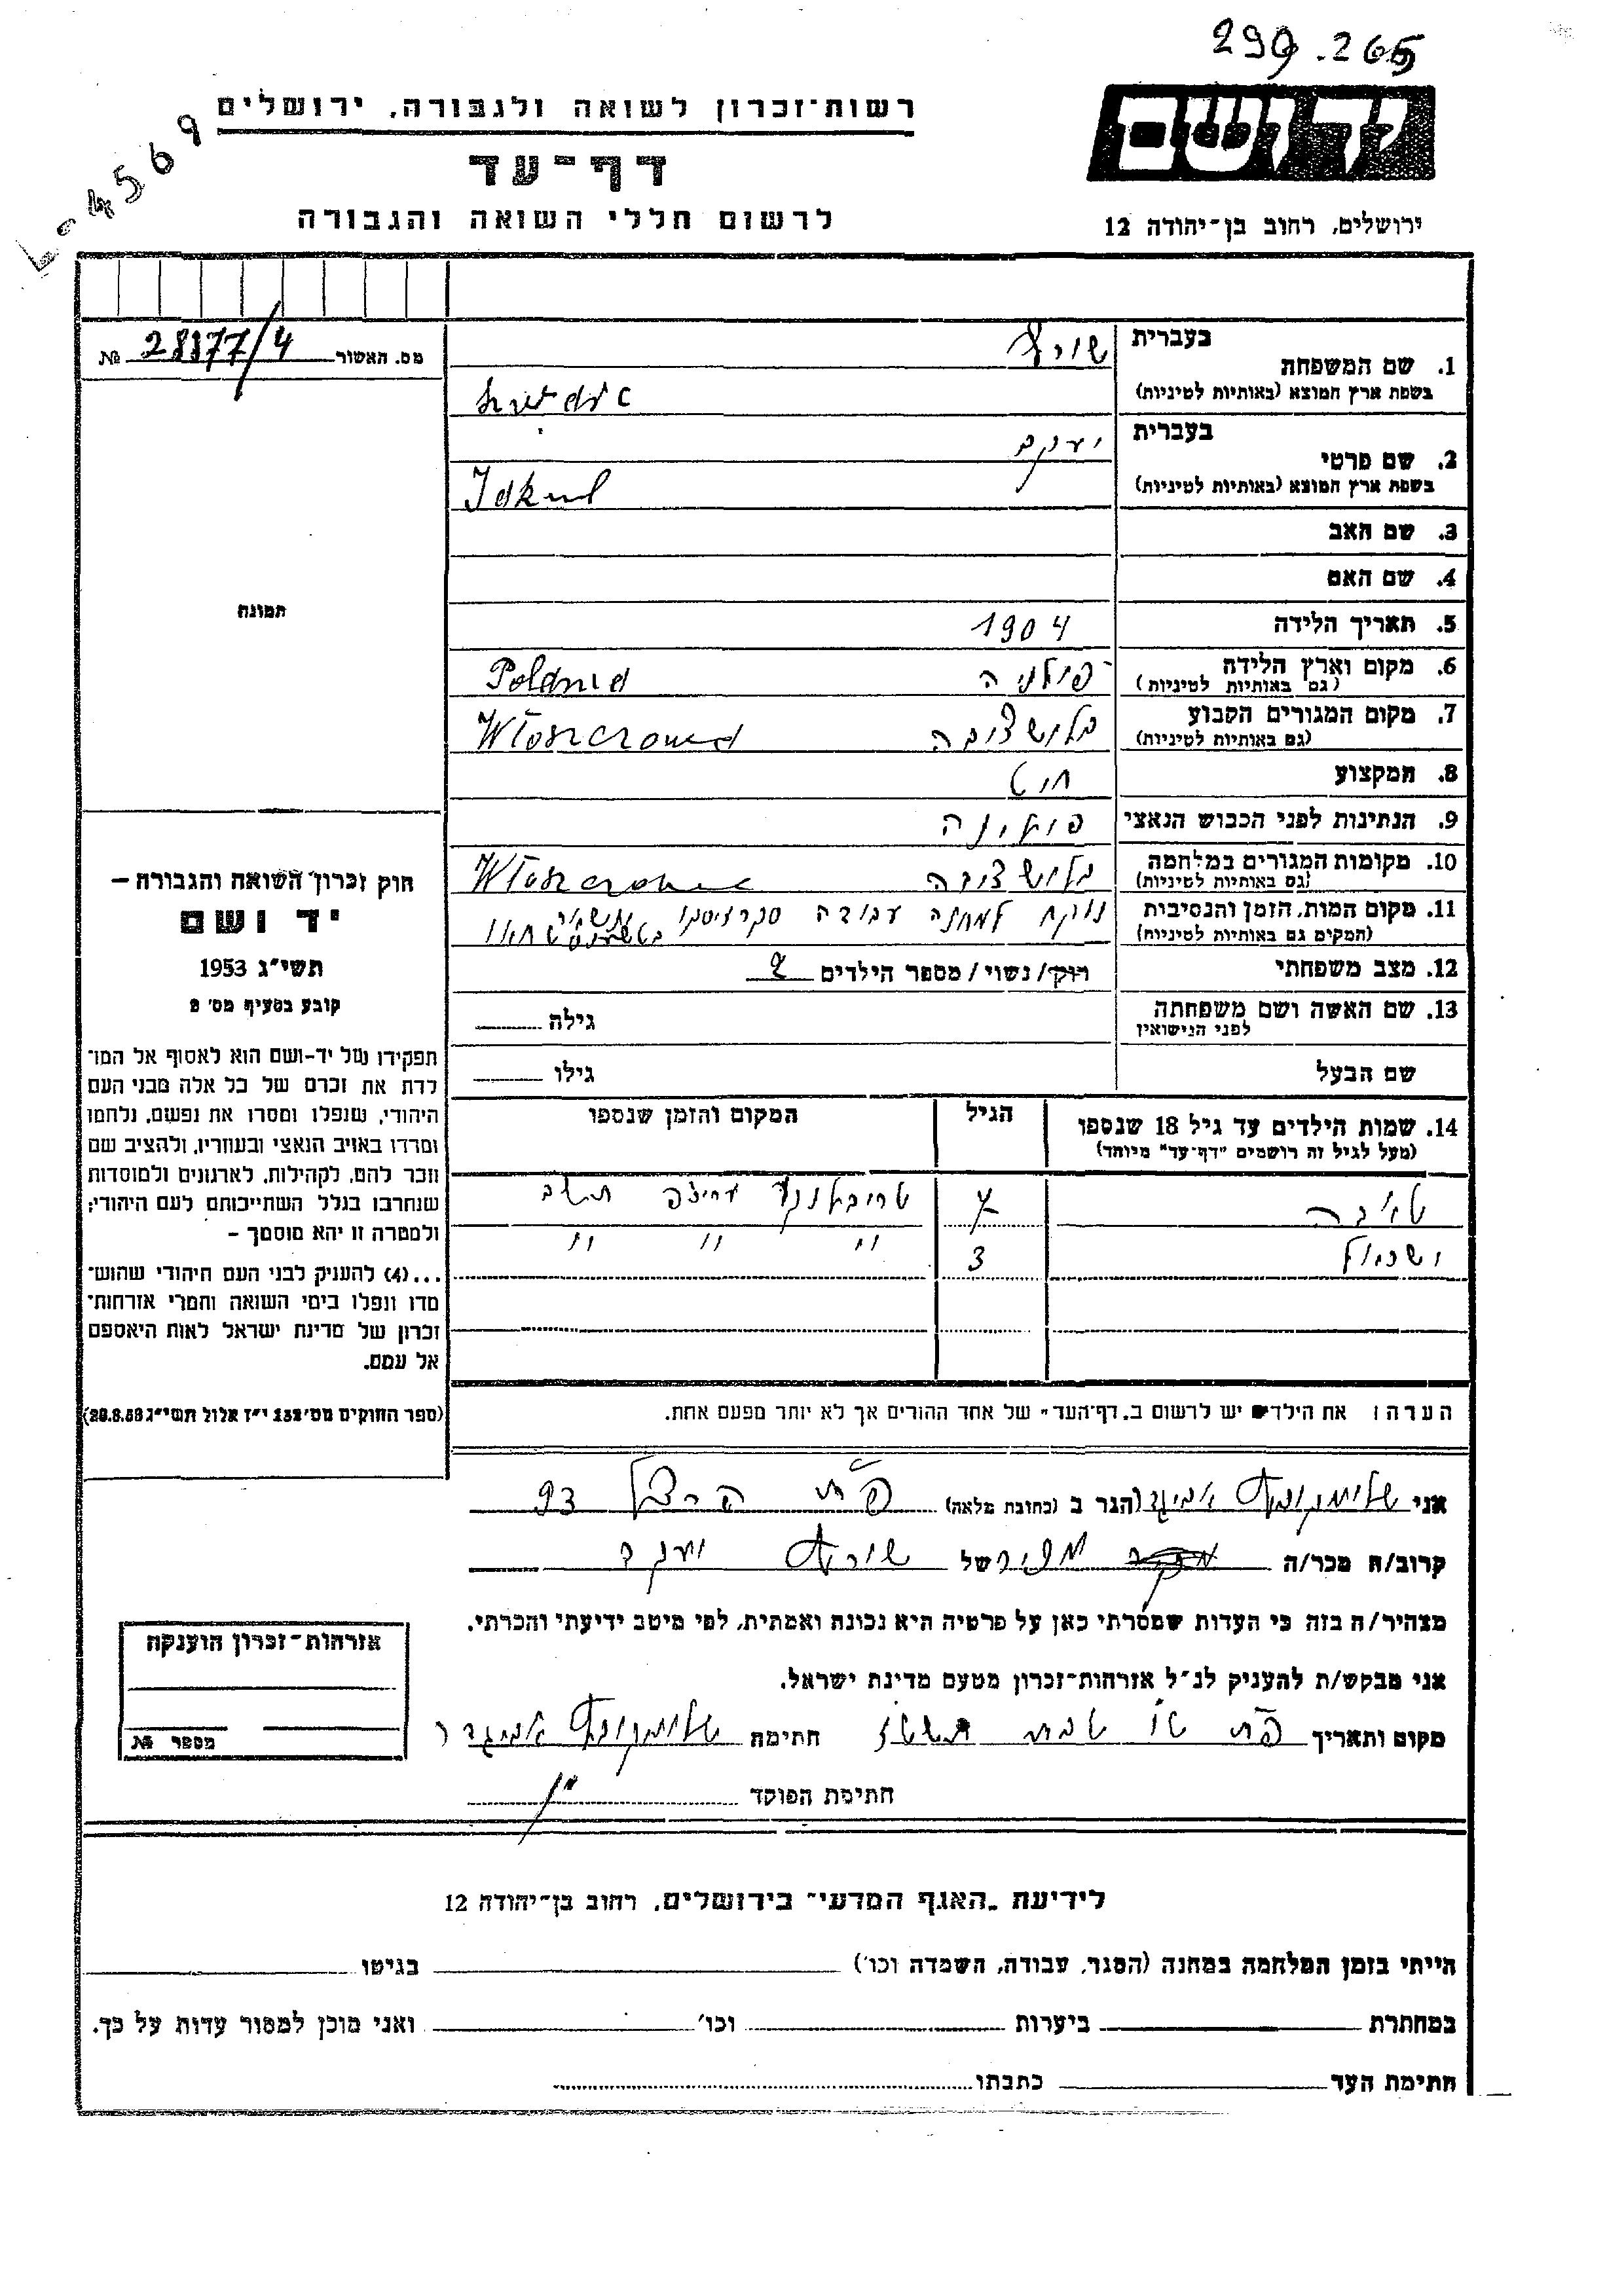 299.265
L-4569
יד ושם
רשות-זכרון לשואה ולגבורה, ירושלים
דף-עד
לרשום חללי השואה והגבורה
ירושלים, רחוב בן-יהודה 12
מס. האשור 28177/4 №
בעברית
1. שם המשפחה
בשפת ארץ המוצא (באותיות לטיניות)
בעברית יעקב
2. שם פרטי
בשפת ארץ המוצא (באותיות לטיניות) Jakub
3. שם האב
4. שם האם
5. תאריך הלידה 1904
6. מקום וארץ הלידה פולניה Polania
(גם באותיות לטיניות)
7. מקום המגורים הקבוע Włoszczowa
(גם באותיות לטיניות)
8. המקצוע חיט
9. הנתינות לפני הכבוש הנאצי פולניה
10. מקומות המגורים במלחמה
(גם באותיות לטיניות)
11. מקום המות, הזמן והנסיבות נלקח למחנה עבודה
(המקום גם באותיות לטיניות)
12. מצב משפחתי רוק/נשוי/מספר הילדים 2
13. שם האשה ושם משפחתה גילה
לפני הנישואין
שם הבעל גילו
14. שמות הילדים עד גיל 18 שנספו הגיל המקום והזמן שנספו
(מעל לגיל זה רושמים "דף-עד" מיוחד)
טאבה 7 טרובלינקה תש"ב
3 " " " "
הערה: את הילדים יש לרשום ב"דף-העד" של אחד ההורים אך לא יותר מפעם אחת.
תמונה
חוק זכרון השואה והגבורה –
יד ושם
תשי"ג 1953
קובע בסעיף מס' 2
תפקידו של יד-ושם הוא לאסוף אל המו־
לדת את זכרם של כל אלה מבני העם
היהודי, שנפלו ומסרו את נפשם, נלחמו
ומרדו באויב הנאצי ובעוזריו, ולהציב שם
וזכר להם, לקהילות, לארגונים ולמוסדות
שנחרבו בגלל השתייכותם לעם היהודי;
ולמטרה זו יהא מוסמך –
...(4) להעניק לבני העם היהודי שהוש־
מדו ונפלו בימי השואה והמרי אזרחות־
זכרון של מדינת ישראל לאות היאספם
אל עמם.
(ספר החוקים מס' 132 י"ז אלול תשי"ג 28.8.53)
אני שלומקוביץ אביגדור הגר ב (כתובת מלאה) פ"ת הרצל 93
קרוב/ה מכר/ה מכיר של יעקב
מצהיר/ה בזה כי העדות שמסרתי כאן על פרטיה היא נכונה ואמתית, לפי מיטב ידיעתי והכרתי.
אני מבקש/ת להעניק לנ"ל אזרחות-זכרון מטעם מדינת ישראל.
מקום ותאריך פ"ת טו טבת חתימת שלומקוביץ אביגדור
חתימת הפוקד
אזרחות-זכרון הוענקה
מספר №
לידיעת "האגף המדעי" בירושלים, רחוב בן-יהודה 12
הייתי בזמן המלחמה במחנה (הסגר, עבודה, השמדה וכו') בגיטו
במחתרת ביערות וכו' ואני מוכן למסור עדות על כך.
חתימת העד כתבתו